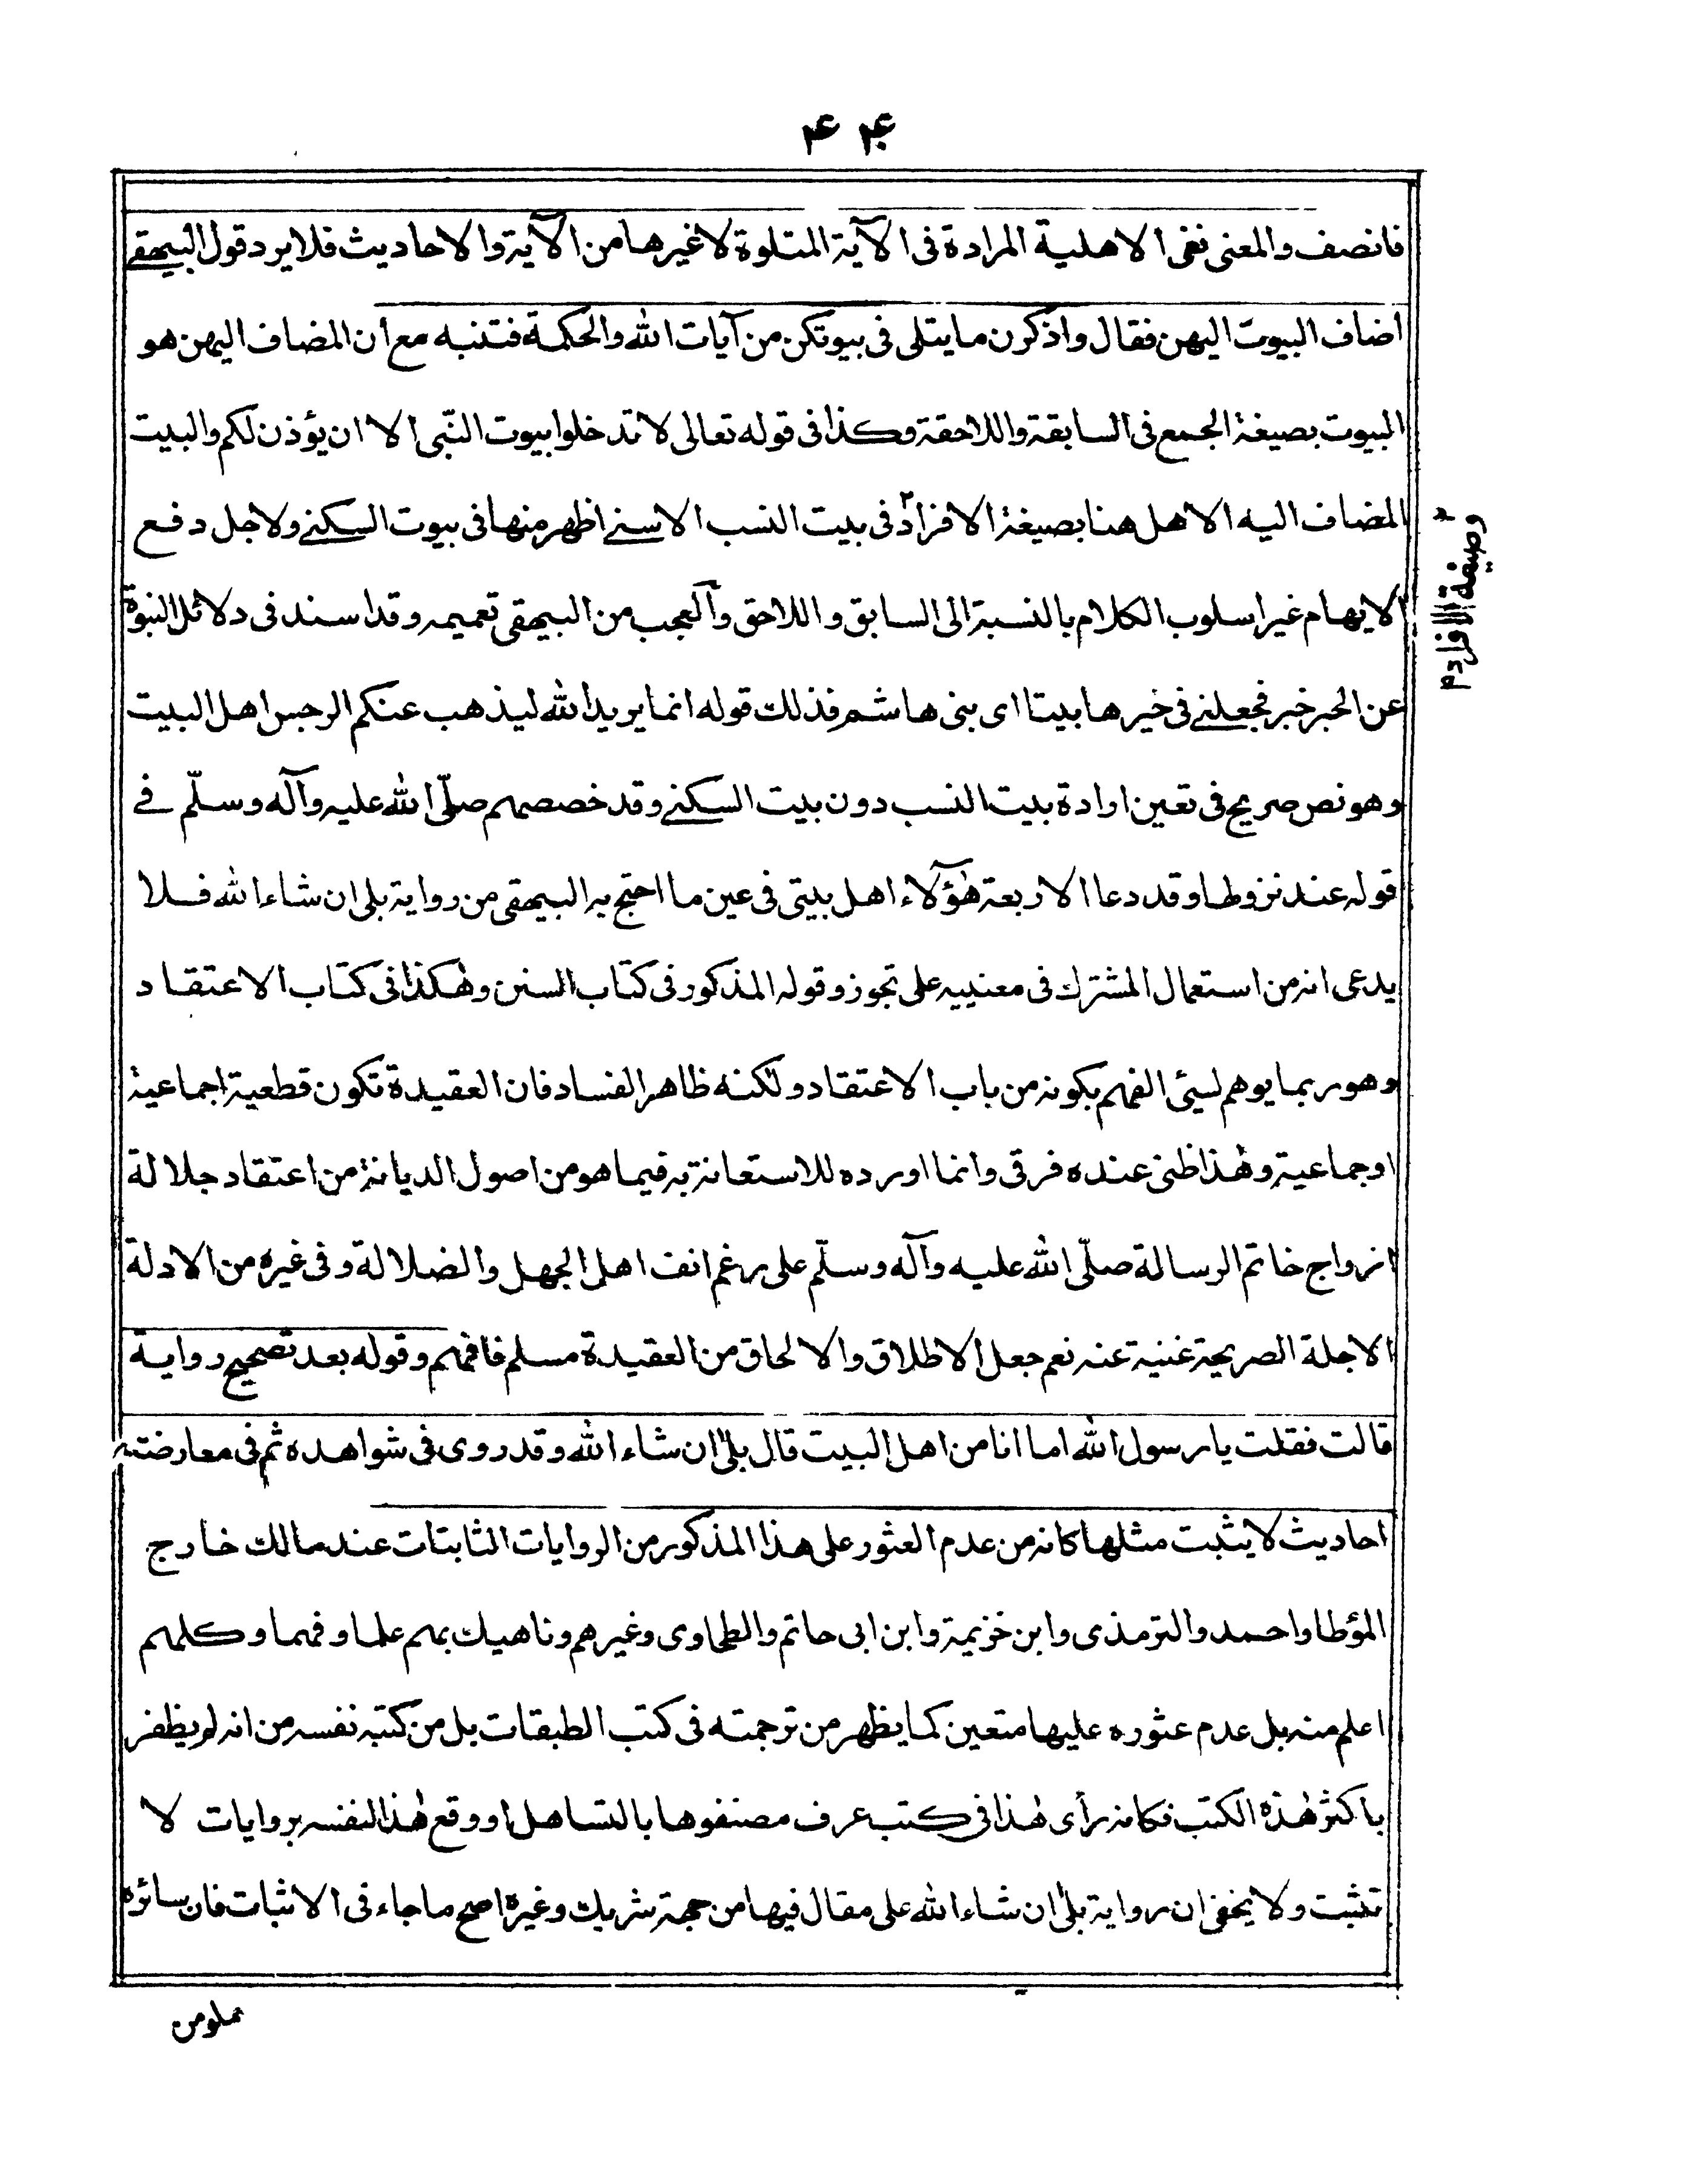 ۴۴
فانصف والمعنى نفى الاهلية المرادة فى الآية المتلوة لا غيرها من الآية والاحاديث فلا يرد قول البيهقى
اضاف البيوت اليهن فقال واذكرن ما يتلى فى بيوتكن من آيات الله والحكمة فتنبه مع ان المضاف اليهن هو
البيوت بصيغة الجمع فى السابقة واللاحقة وكذا فى قوله تعالى لا تدخلوا بيوت النّبى الا ان يؤذن لكم والبيت
المضاف اليه الاهل هنا بصيغة الافراد٢ فى بيت النسب الاسنى اظهر منها فى بيوت السكنى ولاجل دفع
الايهام غير اسلوب الكلام بالنسبة الى السابق واللاحق والعجب من البيهقى تعميمه وقد اسند فى دلائل النبوة
عن الحبر خبر فجعلنى فى خيرها بيتا اى بنى هاشم فذلك قوله انما يريد الله ليذهب عنكم الرجس اهل البيت
وهو نص صريح فى تعين ارادة بيت النسب دون بيت السكنى وقد خصصهم صلّى الله عليه وآله وسلّم فے
قوله عند نزولها وقد دعا الاربعة هٰؤلآء اهل بيتى فى عين ما احتج به البيهقى من رواية بلى ان شاء الله فلا
يدعى انه من استعمال المشترك فى معنييه على تجوز وقوله المذكور فى كتاب السنن وهٰكذا فى كتاب الاعتقاد
وهو ربما يوهم لسيئ الفهم بكونه من باب الاعتقاد ولٰكنه ظاهر الفساد فان العقيدة تكون قطعية اجماعية
او جماعية وهٰذا ظنى عنده فرقى وانما اورده للاستعانة به فيما هو من اصول الديانة من اعتقاد جلالة
ازواج خاتم الرسالة صلّى الله عليه وآله وسلّم على رغم انف اهل الجهل والضلالة وفى غيره من الادلة
الاجلة الصريحة غنية عنه نعم جعل الاطلاق والالحاق من العقيدة مسلم فافهم وقوله بعد تصحيح رواية
قالت فقلت يا رسول الله اما انا من اهل البيت قال بلىٰ ان شاء الله وقد روى فى شواهده ثم فى معارضته
احاديث لا يثبت مثلها كانه من عدم العثور على هذا المذكور من الروايات الثابتات عند مالك خارج
المؤطا واحمد والترمذى وابن خزيمة وابن ابى حاتم والطحاوى وغيرهم وناهيك بهم علما وفهما وكلهم
اعلم منه بل عدم عثوره عليها متعين كما يظهر من ترجمته فى كتب الطبقات بل من كتبه نفسه من انه لم يظفر
باكثر هٰذه الكتب فكانه رأى هٰذا فى كتب عرف مصنفوها بالتساهل او وقع هٰذا لنفسه بروايات لا
تثبت ولا يخفى ان رواية بلىٰ ان شاء الله على مقال فيها من جهة شريك وغيره اصح ما جاء فى الاثبات فان سائره
٢ وصيغة الافراد م
مملومن